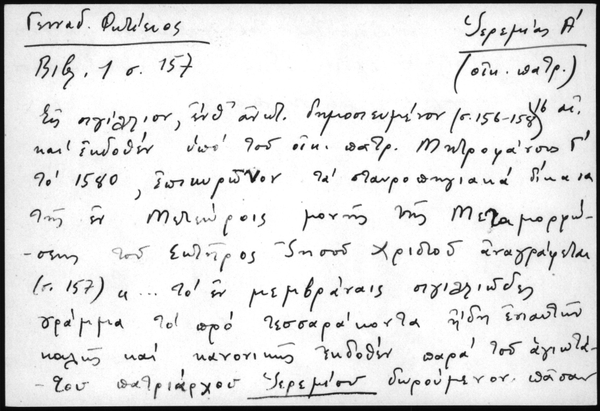 Γενναδ. Φωτίειος Ἱερεμίας Α΄
Βιβ. 1 σ. 157 (οἰκ. πατρ.)
Εἰς σιγίλλιον, ἔνθ' ἀνωτ. δημοσιευμένον (σ. 156-158) 16 αἰ.
καί ἐκδοθέν ὑπό τοῦ οἰκ. πατρ. Μητροφάνους Γ΄
τό 1580, ἐπικυρῶνον τά σταυροπηγιακά δίκαια
τῆς ἐν Μετεώροις μονῆς τῆς Μεταμορφώ-
-σεως τοῦ Σωτῆρος Ἰησοῦ Χριστοῦ ἀναγράφεται
(σ. 157) κ... τό ἐν μεμβράναις σιγιλλιῶδες
γράμμα τό πρό τεσσαράκοντα ἤδη ἐνιαυτῶν
καλῶς καί κανονικῶς ἐκδοθέν παρά τοῦ ἁγιωτά-
-του πατριάρχου Ἱερεμίου δωρούμενον πᾶσαν